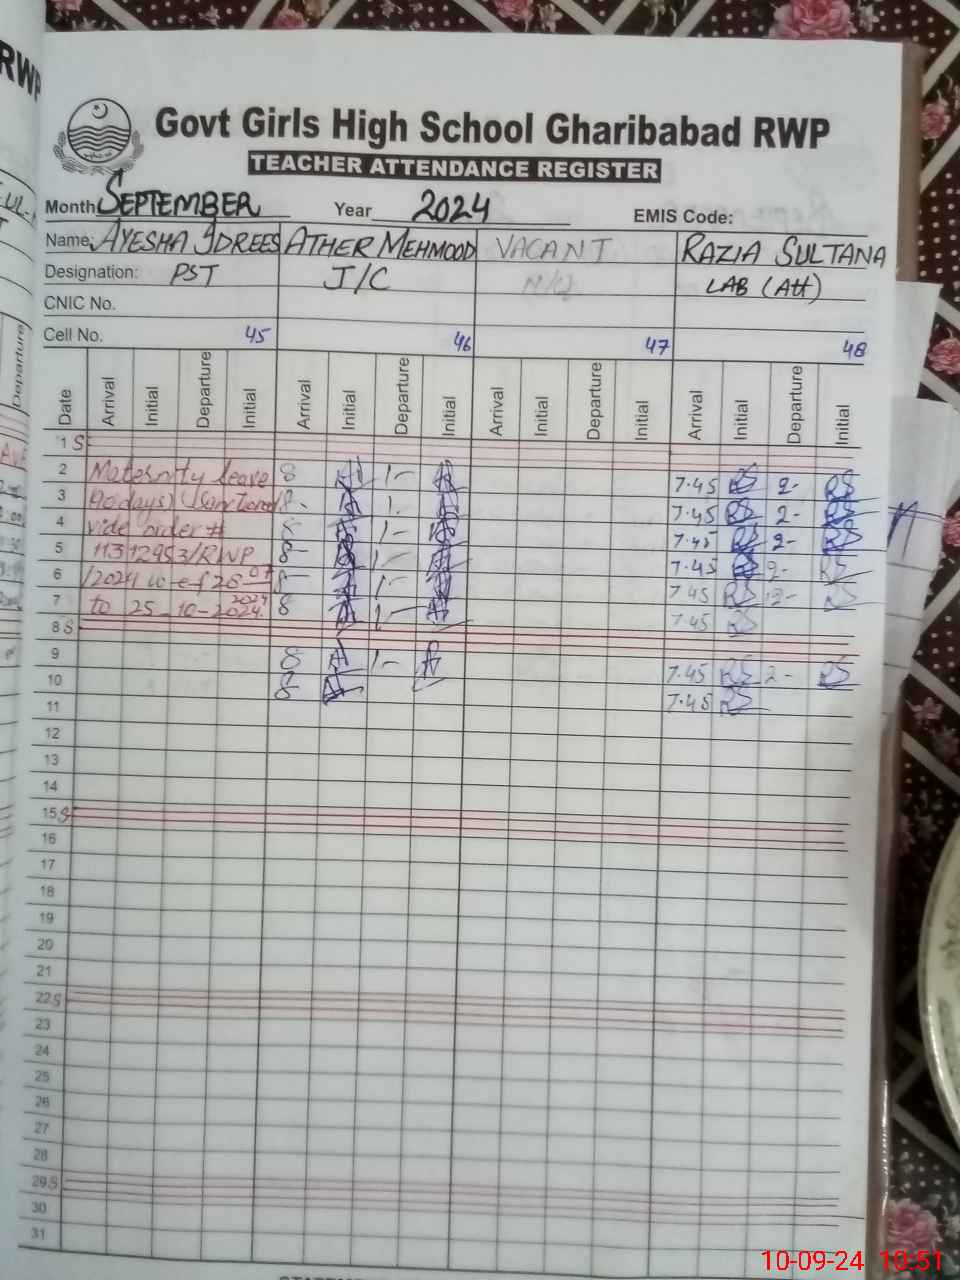 RWP
Govt Girls High School Gharibabad RWP
TEACHER ATTENDANCE REGISTER
Month SEPTEMBER Year 2024 EMIS Code:
Name: AYESHA IDREES ATHER MEHMOOD VACANT RAZIA SULTANA
Designation: PST J/C LAB (Att)
CNIC No.
Cell No. 45 46 47 48
Date Arrival Initial Departure Initial Arrival Initial Departure Initial Arrival Initial Departure Initial Arrival Initial Departure Initial
1 S
2 Maternity leave 8 1- 7.45 RS 2- RS
3 (90 days) Sanctioned 8- 1- 7.45 RS 2- RS
4 vide order # 8- 1- 7.45 RS 2- RS
5 /RWP 8- 1- 7.45 RS 2- RS
6 /2024 w-e-f 26 8- 1- 7.45 RS RS
7 to 25-10-2024. 8 1- 7.45 RS
8 S
9 8 1- 7.45 RS 2- RS
10 8 7.45 RS
11
12
13
14
15 S
16
17
18
19
20
21
22 S
23
24
25
26
27
28
29 S
30
31
10-09-24 10:51